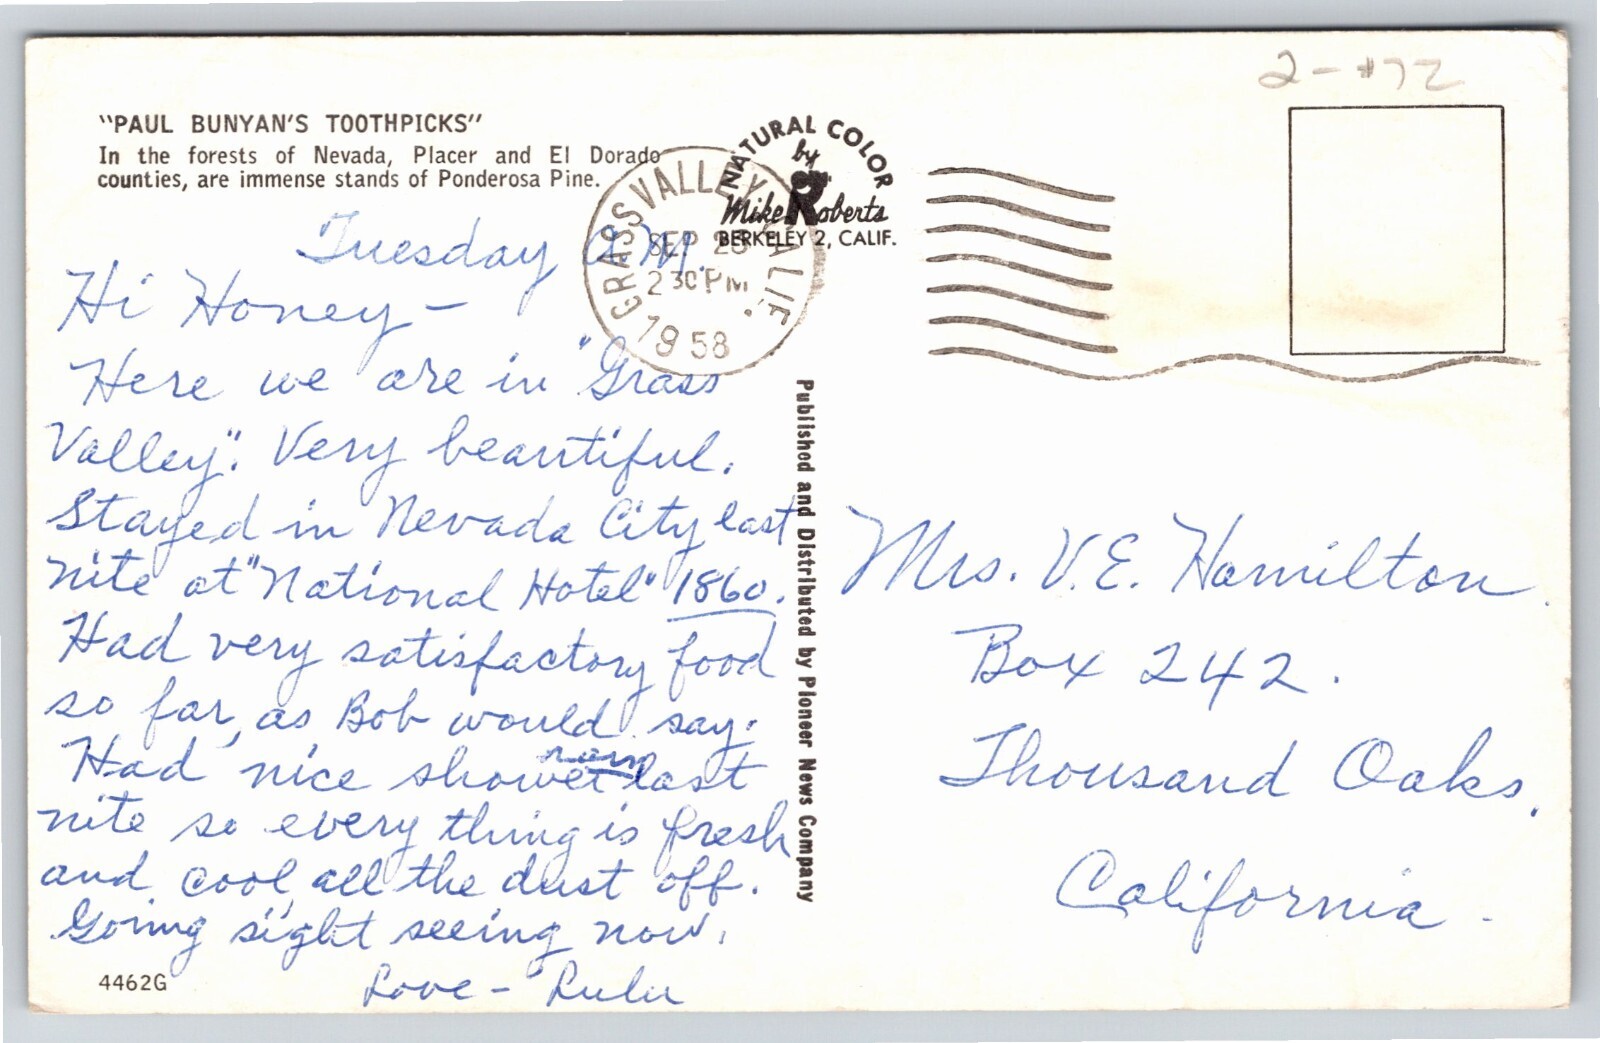 2-#72
"PAUL BUNYAN'S TOOTHPICKS"
In the forests of Nevada, Placer and El Dorado
counties, are immense stands of Ponderosa Pine.
NATURAL COLOR
by
Mike Roberts
BERKELEY 2, CALIF.
GRASS VALLEY CALIF.
SEP 23
2 30 PM
1958
Tuesday A.M.
Hi Honey –
Here we are in "Grass
Valley". Very beautiful.
Stayed in Nevada City last
nite at "National Hotel" 1860.
Had very satisfactory food
so far, as Bob would say.
rain
Had nice shower last
nite so every thing is fresh
and cool, all the dust off.
Going sight seeing now.
Love – Lulu
4462G
Published and Distributed by Pioneer News Company
Mrs. V.E. Hamilton.
Box 242.
Thousand Oaks.
California -